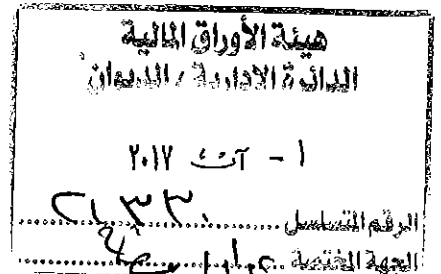 هيئة الأوراق المالية
الدائرة الادارية / الديوان
١ - آب ٢٠١٧
الرقم المتسلسل
الجهة المختصة